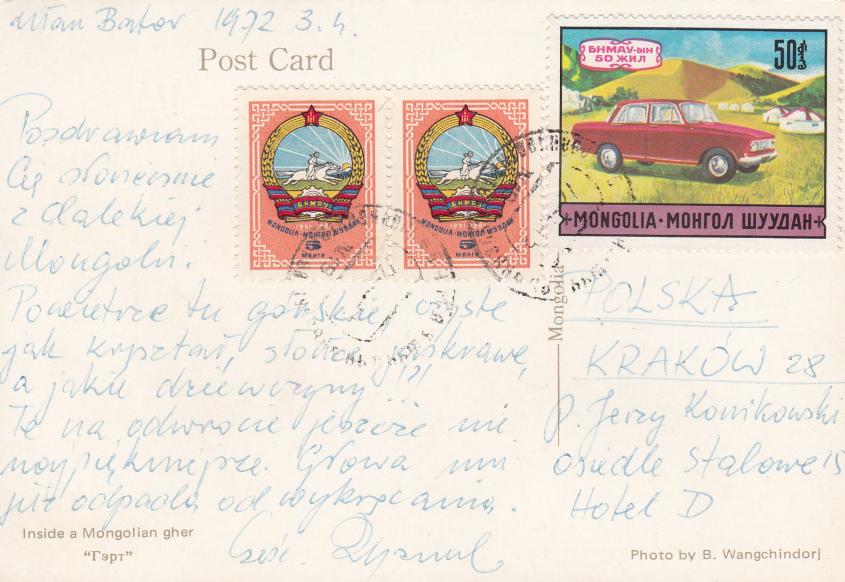 Ułan Bator 1972 3.4.
Post Card
Pozdrawiam
Cię słonecznie
z dalekiej
Mongolii.
Powietrze tu górskie, czyste
jak kryształ, słońce jaskrawe,
a jakie dziewczyny!?!
Te na odwrocie jeszcze nie
najpiękniejsze. Głowa mi
już odpadła od wykręcania.
Cześć.
Inside a Mongolian gher
"Гэрт"
БНМАУ
MONGOLIA-МОНГОЛ ШУУДАН
5
мөнгө
БНМАУ
MONGOLIA-МОНГОЛ ШУУДАН
5
мөнгө
БНМАУ-ЫН
50 ЖИЛ
50
MONGOLIA · МОНГОЛ ШУУДАН
Mongolia
POLSKA
KRAKÓW 28
P. Jerzy Konikowski
osiedle Stalowe 15
Hotel D
Photo by B. Wangchindorj